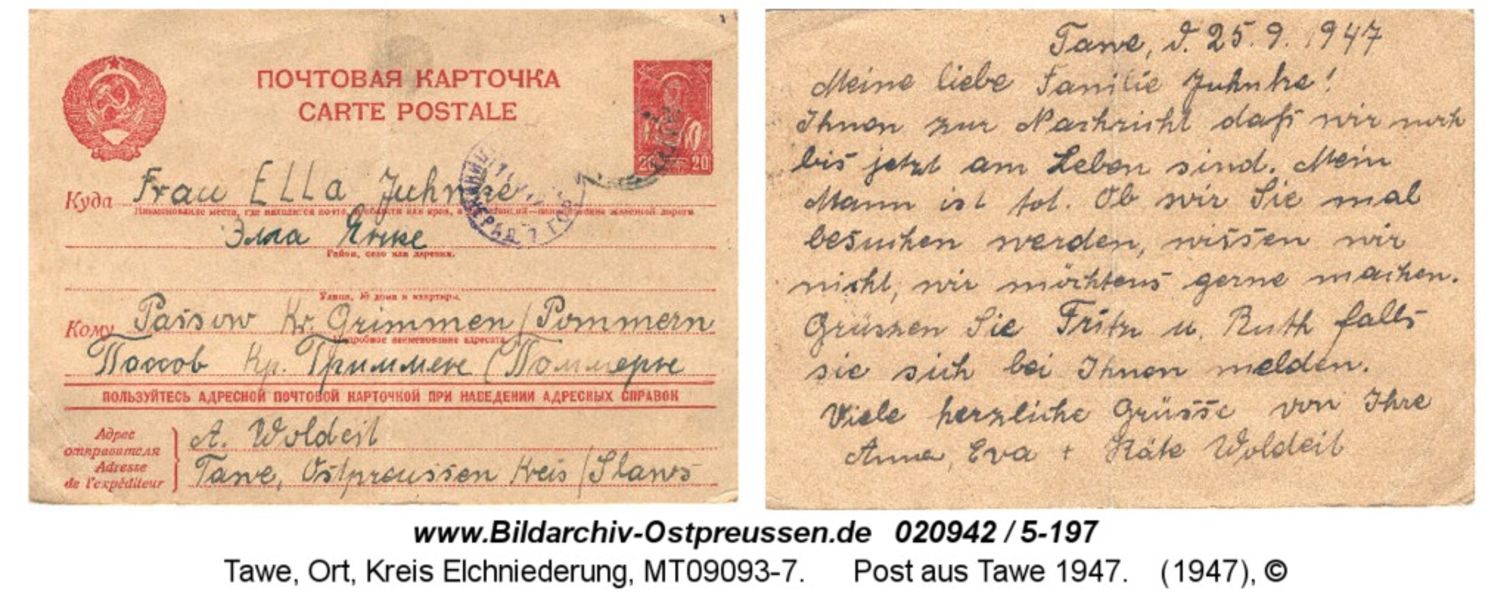 ПОЧТОВАЯ КАРТОЧКА
CARTE POSTALE
20 20
Куда Frau Ella Juhnke
Наименование места, где находится почта, и области или края, а для станций—наименование железной дороги
Элла Юнке
Район, село или деревня.
Улица, № дома и квартиры.
Кому Passow Kr. Grimmen / Pommern
Подробное наименование адресата
Пассов Кр. Гриммен (Поммерн
ПОЛЬЗУЙТЕСЬ АДРЕСНОЙ ПОЧТОВОЙ КАРТОЧКОЙ ПРИ НАВЕДЕНИИ АДРЕСНЫХ СПРАВОК
Адрес отправителя
Adresse de l'expéditeur
A. Woldeit
Tawe, Ostpreussen Kreis / Slaws
Tawe, d. 25.9.1947
Meine liebe Familie Juhnke!
Ihnen zur Nachricht daß wir noch
bis jetzt am Leben sind. Mein
Mann ist tot. Ob wir Sie mal
besuchen werden, wissen wir
nicht, wir möchtens gerne machen.
Grüssen Sie Fritz u. Ruth falls
sie sich bei Ihnen melden.
Viele herzliche Grüsse von Ihre
Anna, Eva + Käte Woldeit
www.Bildarchiv-Ostpreussen.de 020942 / 5-197
Tawe, Ort, Kreis Elchniederung, MT09093-7. Post aus Tawe 1947. (1947), ©